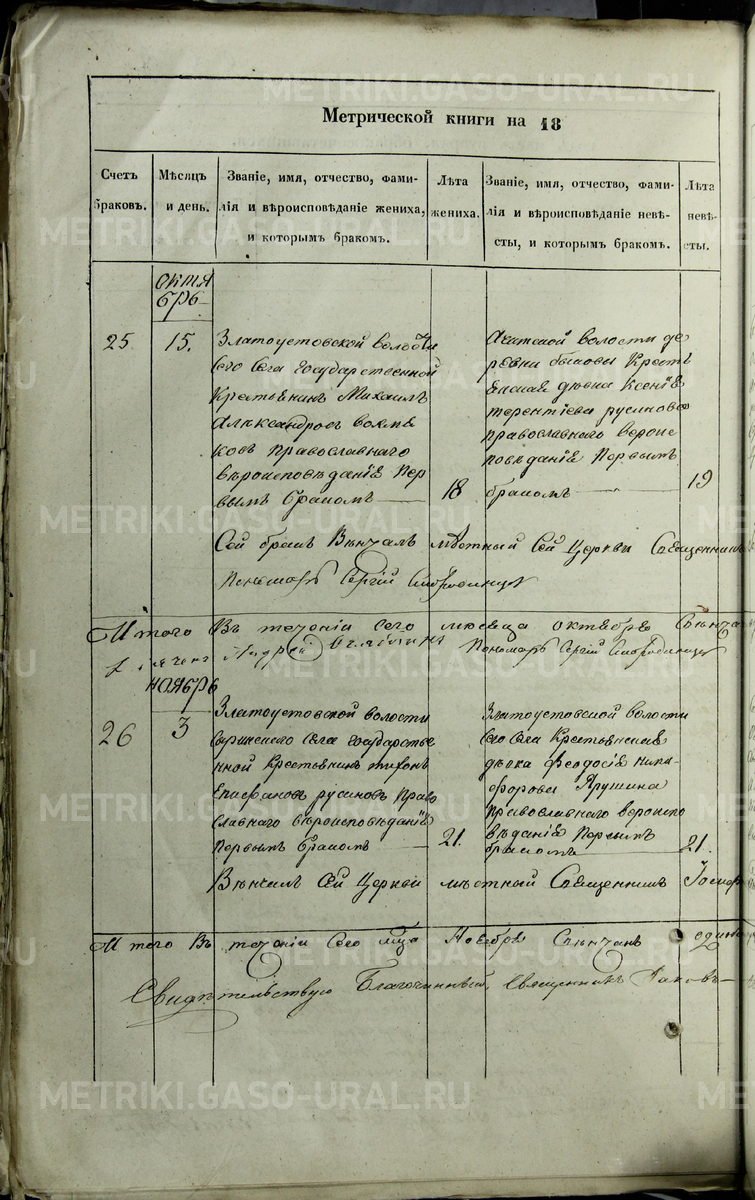 Метрической книги на 18
Счетъ браковъ.
Мѣсяцъ и день.
Званіе, имя, отчество, фами-
лія и вѣроисповѣданіе жениха,
и которымъ бракомъ.
Лѣта жениха.
Званіе, имя, отчество, фами-
лія и вѣроисповѣданіе невѣ-
сты, и которымъ бракомъ.
Лѣта невѣ-
сты.
октя
брь
25
15.
Златоустовской волости
сего села государственной
Крестьянинъ Михаилъ
Александровъ
ковъ православнаго
вѣроисповѣданія пер
вымъ бракомъ
18
Ачитской волости де
ревни Крестъ
янская дѣвка Ксенія
терентіева русинова
православнаго вероис
повѣданія Первымъ
бракомъ
19
Сей бракъ Вѣнчалъ мѣстный Сей Церкви Священникъ
Пономарь Сергій
Итого Въ теченіи сего месеца октебре Свѣнча
Андрей Пономарь Сергій
ноябрь
26
3
Златоустовской волости
села государстве
нной Крестьянинъ тихонъ
Епифановъ русиновъ право
славнаго вѣроисповѣданія
первымъ бракомъ
21.
Златоустовской волости
сего села Крестьянская
дѣвка феодосія ники
форова Ярушина
православнаго вероиспо
вѣданія первымъ
бракомъ
21.
Вѣнчалъ Сей Церкви мѣстный Священникъ
Итого Въ теченіи сего мца Ноебре Свѣнчанъ одинъ
Свидѣтельствую Благочинный, Священникъ Іаковъ
METRIKI.GASO-URAL.RU